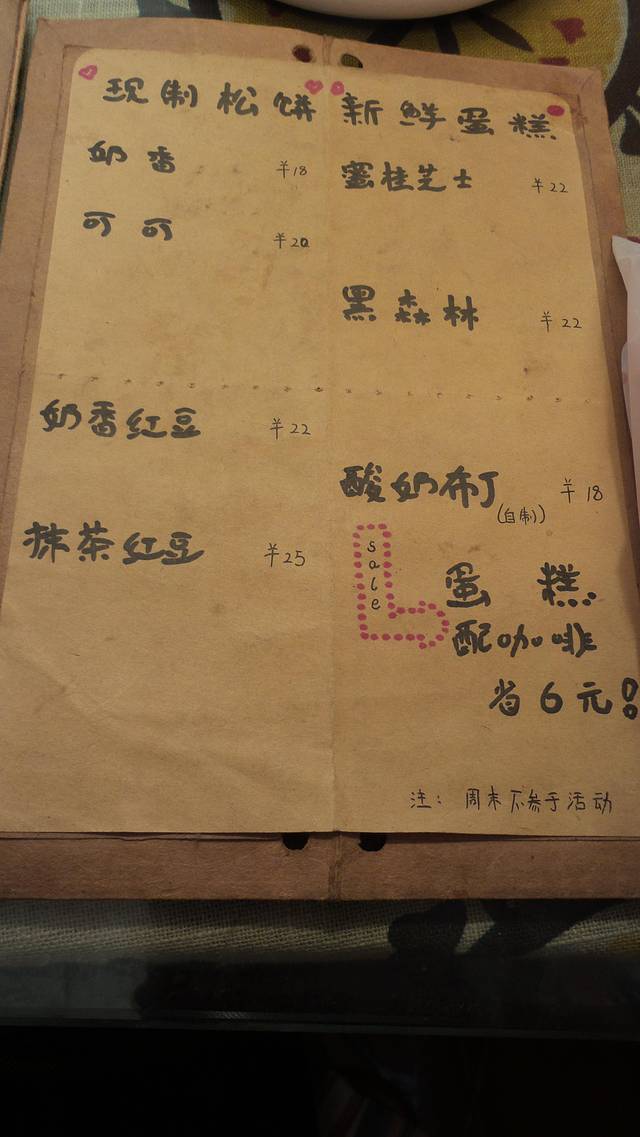 现制松饼
奶香 ¥18
可可 ¥20
奶香红豆 ¥22
抹茶红豆 ¥25
新鲜蛋糕
蜜桂芝士 ¥22
黑森林 ¥22
酸奶布丁 ¥18
(自制)
sale
蛋糕
配咖啡
省6元!
注: 周末不参于活动